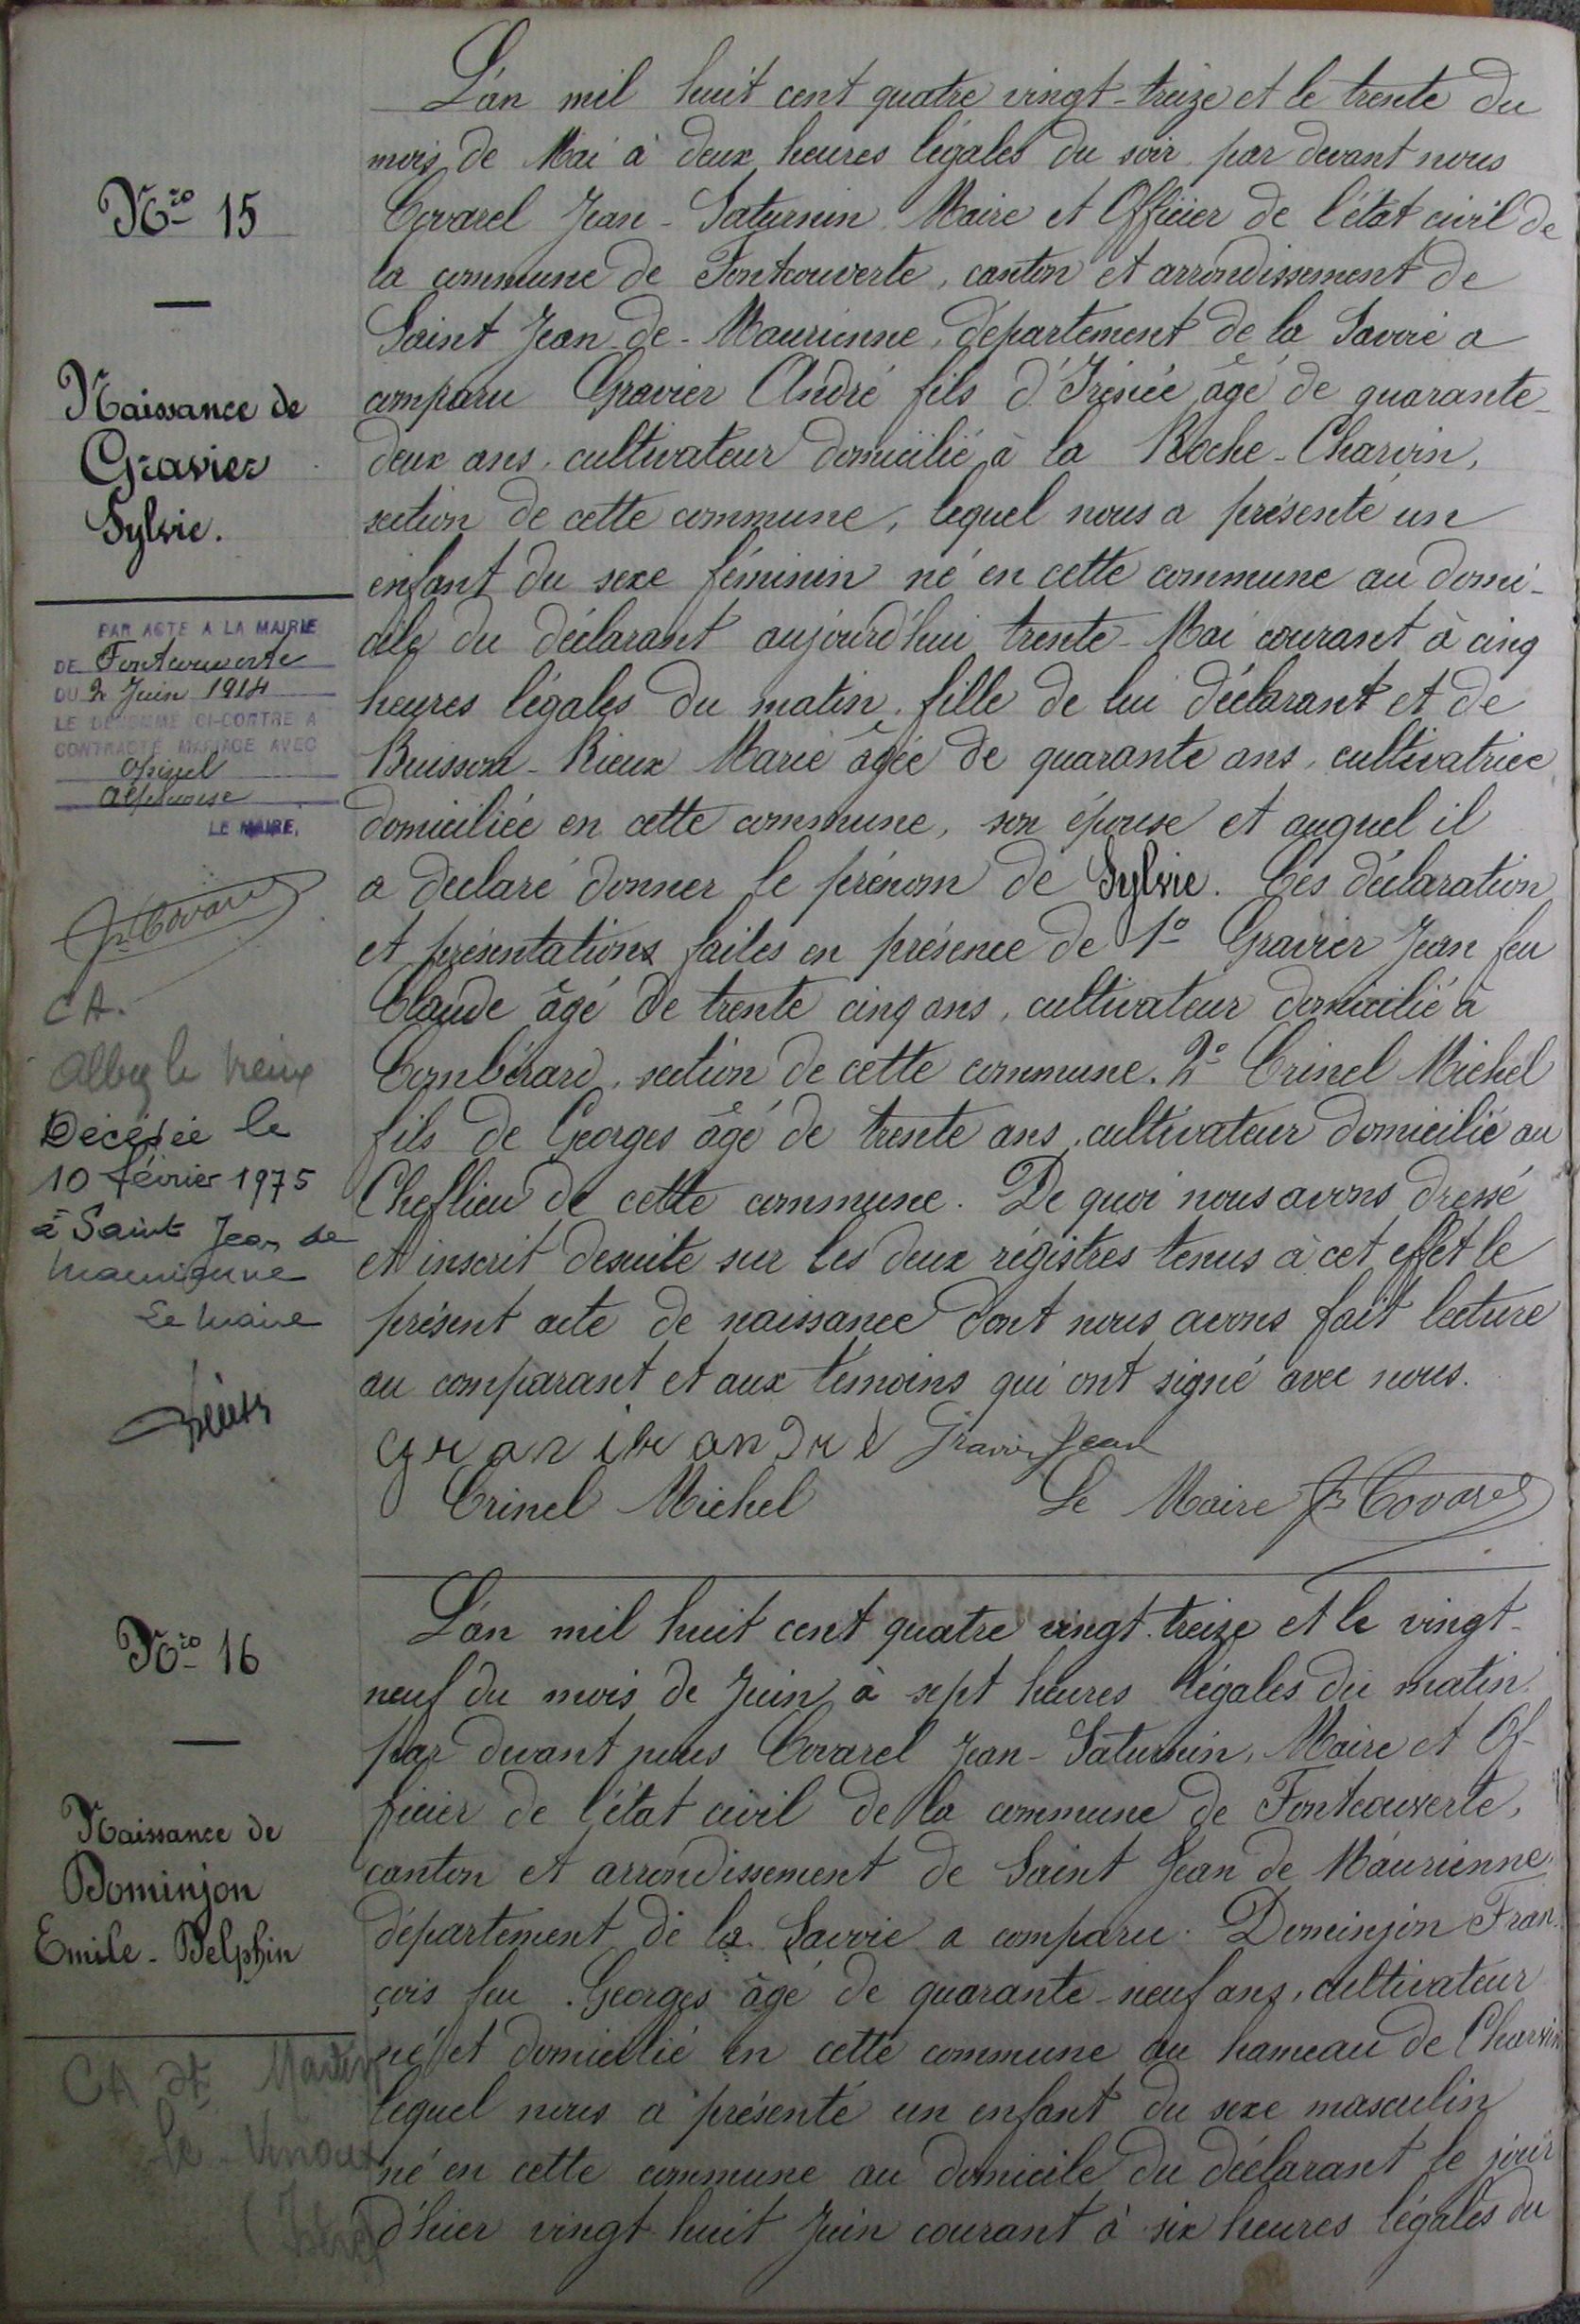 Nro 15
Naissance de
Gravier
Sylvie.
PAR ACTE A LA MAIRIE
DE Fontcouverte
DU 2 Juin 1914
LE DÉNOMMÉ CI-CONTRE A
CONTRACTÉ MARIAGE AVEC
Alphonse
LE MAIRE,
Jn Covarel
CA.
Albiez le vieux
Décédée le
10 février 1975
à Saint Jean de
Maurienne
Le Maire
L'an mil huit cent quatre vingt-treize et le trente du
mois de Mai à deux heures légales du soir par devant nous
Covarel Jean-Saturnin Maire et Officier de l'état civil de
la commune de Fontcouverte, canton et arrondissement de
Saint Jean-de-Maurienne, département de la Savoie a
comparu Gravier André fils d'Irénée âgé de quarante-
deux ans, cultivateur domicilié à la Roche-Charvin,
section de cette commune, lequel nous a présenté un
enfant du sexe féminin né en cette commune au domi-
cile du déclarant aujourd'hui trente-Mai courant à cinq
heures légales du matin, fille de lui déclarant et de
Buisson-Rieux Marie âgée de quarante ans, cultivatrice
domiciliée en cette commune, son épouse et auquel il
a déclaré donner le prénom de Sylvie. Ces déclaration
et présentations faites en présence de 1º Gravier Jean feu
Claude âgé de trente cinq ans, cultivateur domicilié à
Combérard, section de cette commune. 2º Crinel Michel
fils de Georges âgé de trente ans, cultivateur domicilié au
Cheflieu de cette commune. De quoi nous avons dressé
et inscrit desuite sur les deux régistres tenus à cet effet le
présent acte de naissance dont nous avons fait lecture
au comparant et aux témoins qui ont signé avec nous.
gravier andré Gravier Jean
Crinel Michel Le Maire Jn Covarel
Nro 16
Naissance de
Dominjon
Emile-Delphin
CA St Martin
le Vinoux
(Isère)
L'an mil huit cent quatre vingt-treize et le vingt-
neuf du mois de Juin à sept heures légales du matin
par devant nous Covarel Jean-Saturnin, Maire et Of-
ficier de l'état civil de la commune de Fontcouverte,
canton et arrondissement de Saint Jean de Maurienne
département de la Savoie a comparu Dominjon Fran-
çois feu Georges âgé de quarante-neuf ans, cultivateur
né et domicilié en cette commune au hameau de Charvin
lequel nous a présenté un enfant du sexe masculin
né en cette commune au domicile du déclarant le jour
d'hier vingt-huit Juin courant à six heures légales du